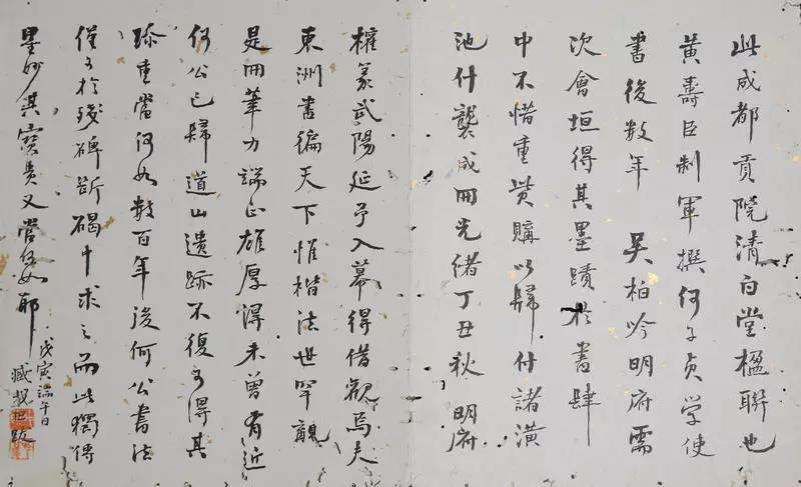 此成都貢院清白堂楹聯也
黃壽臣制軍撰何子貞学使
書後数年 吴柏吟明府需
次會垣得其墨蹟於書肆
中不惜重貲購以歸付諸潢
池什襲成冊光緒丁丑秋明府
權篆武陽延予入幕得借觀焉夫
東洲書徧天下惟楷法世罕覯
是冊筆力端正雄厚得未曾有近
何公已歸道山遺跡不復可得其
珍重當何如数百年後何公書法
僅可於殘碑斷碣中求之而此獨傳
墨妙其寶貴又當何如耶
戊寅端午日
臧跋